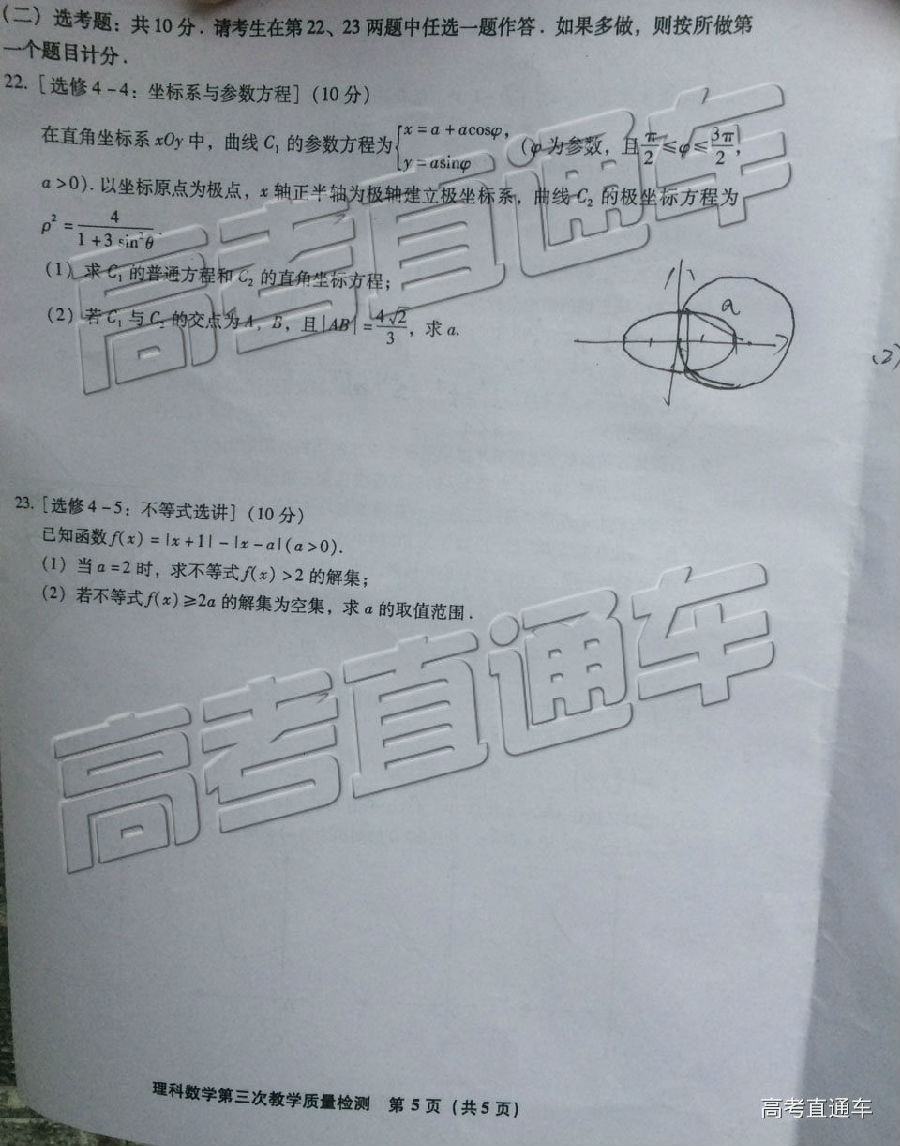 (二)选考题:共10分.请考生在第22、23两题中任选一题作答.如果多做,则按所做第
一个题目计分.
22.[选修4-4:坐标系与参数方程](10分)
在直角坐标系xOy中,曲线C₁的参数方程为{x=a+acosφ, y=asinφ (φ为参数,且π/2≤φ≤3π/2,
a>0).以坐标原点为极点,x轴正半轴为极轴建立极坐标系,曲线C₂的极坐标方程为
ρ²=4/(1+3sin²θ).
(1)求C₁的普通方程和C₂的直角坐标方程;
(2)若C₁与C₂的交点为A,B,且|AB|=4√2/3,求a.
a
(2)
23.[选修4-5:不等式选讲](10分)
已知函数f(x)=|x+1|-|x-a|(a>0).
(1)当a=2时,求不等式f(x)>2的解集;
(2)若不等式f(x)≥2a的解集为空集,求a的取值范围.
高考直通车
高考直通车
理科数学第三次教学质量检测 第5页(共5页)
高考直通车